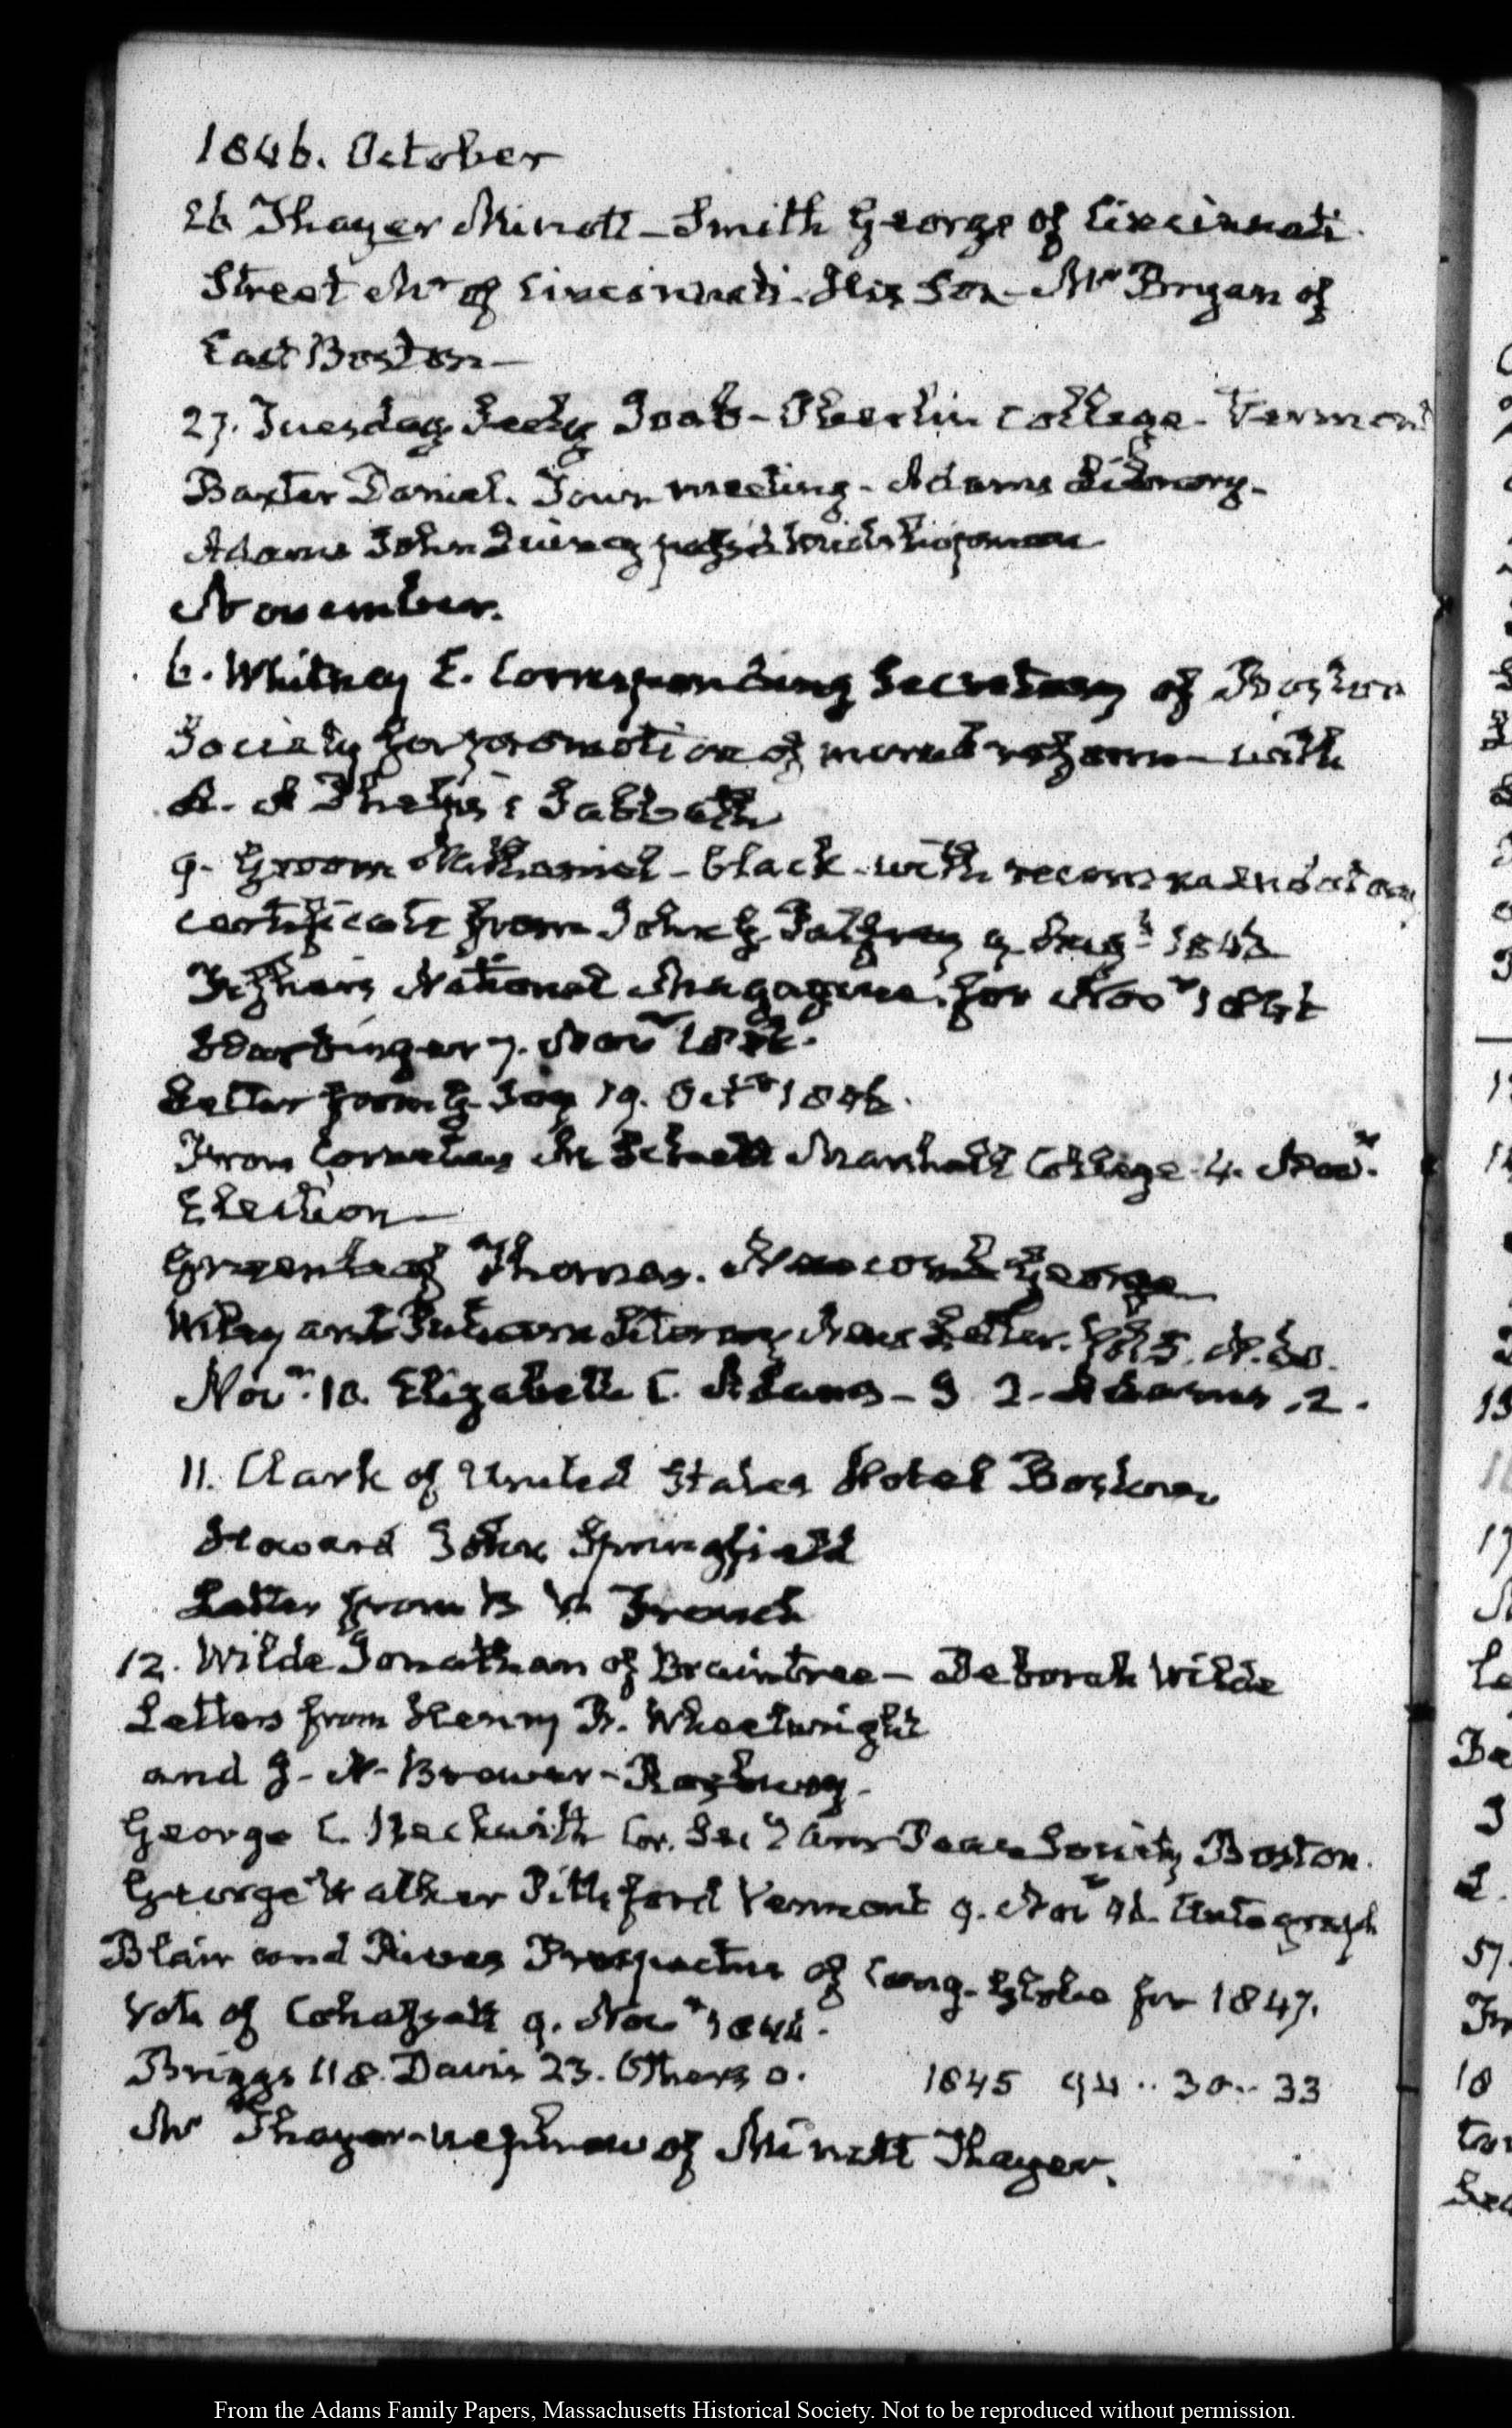 1846. October
26 Thayer Minott - Smith George of Cincinnati.
Street Mr of Cincinnati. His Son - Mr Bryan of
East Boston -
27. Tuesday Seely - Oberlin College. Vermont
Baxter Daniel. Town meeting - Adams Library -
Adams John Quincy passed midshipman
November.
6. Whitney E. Corresponding Secretary of Boston
Society for promotion of moral reform - with
A. A Phelps's Sabbath
9. Groom Nathaniel - black with recommendatory
certificate from John G. Palfrey 9
National Magazine for Novr
Harbinger 7. Novr
Letter from 19. Octr 1846.
From Cornelius Marshall College 4. Novr
Election
Greenleaf Thomas. George
Wiley and Putnam Literary News Letter. Vol 5. N.
Novr. 10. Elizabeth C. Adams - J. Q. Adams .2.
11. Clark of United States Hotel Boston
Howard John Springfield
Letter from B V French
12. Wilde Jonathan of Braintree - Deborah Wilde
Letters from Henry B. Wheelwright
and J. N. Brewer - Roxbury.
George C. Beckwith Cor. Secy Amr Peace Society Boston.
George Walker Pittsford Vermont 9. Novr Autograph
Blair and Rives Prospectus of Cong. Globe for 1847.
Vote of Cohasset 9. Novr 1846.
Briggs 118. Davis 23. Others 0. 1845 94 .. 30 .. 33
Mr Thayer - nephew of Minott Thayer.
From the Adams Family Papers, Massachusetts Historical Society. Not to be reproduced without permission.